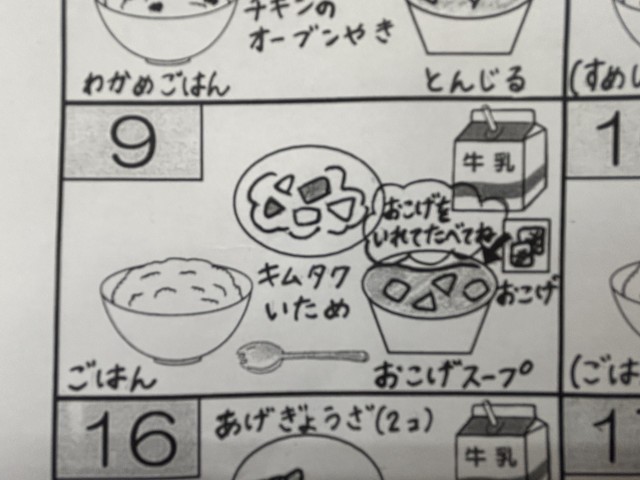 チキンの
オーブンやき
わかめごはん
とんじる
(すめし
9
牛乳
おこげを
いれてたべてね
おこげ
キムタク
いため
ごはん
おこげスープ
(ごは
16
あげぎょうざ(2コ)
牛乳